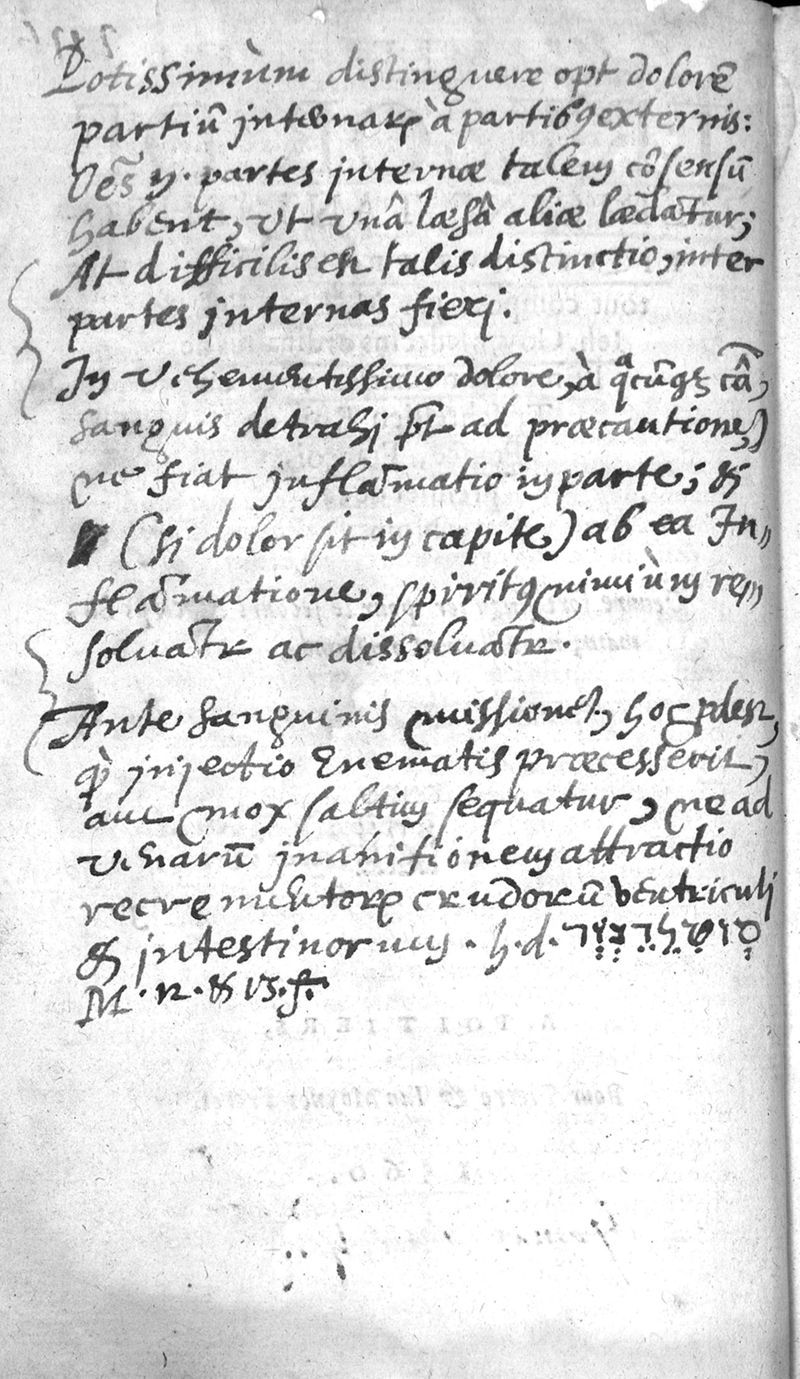 Potissimùm distinguere opt dolorē
partiū internarꝝ à partibꝰ externis:
Oēs n. partes internæ talem cōsensū
habent, vt vnâ læsâ aliæ lædātur;
At difficilis est talis distinctio, inter
partes internas fieri.
In vehementissimo dolore, à qͣcūqꝫ cā,
sanguis detrahi pt̄ ad præcautionē,
ne fiat inflāmatio in parte; &
(si dolor sit in capite) ab ea In„
flāmatione, spiritꝰ nimiùm re„
soluātr ac dissoluātr.
Ante sanguinis missionē, hoc
qd̀ injectio Enematis præcesserit,
aut mox saltim sequatur, ne ad
venarū inanitionem attractio
recrementorꝝ crudorū ventriculi
& intestinorum. h.d.
M. 12. & 13. f.